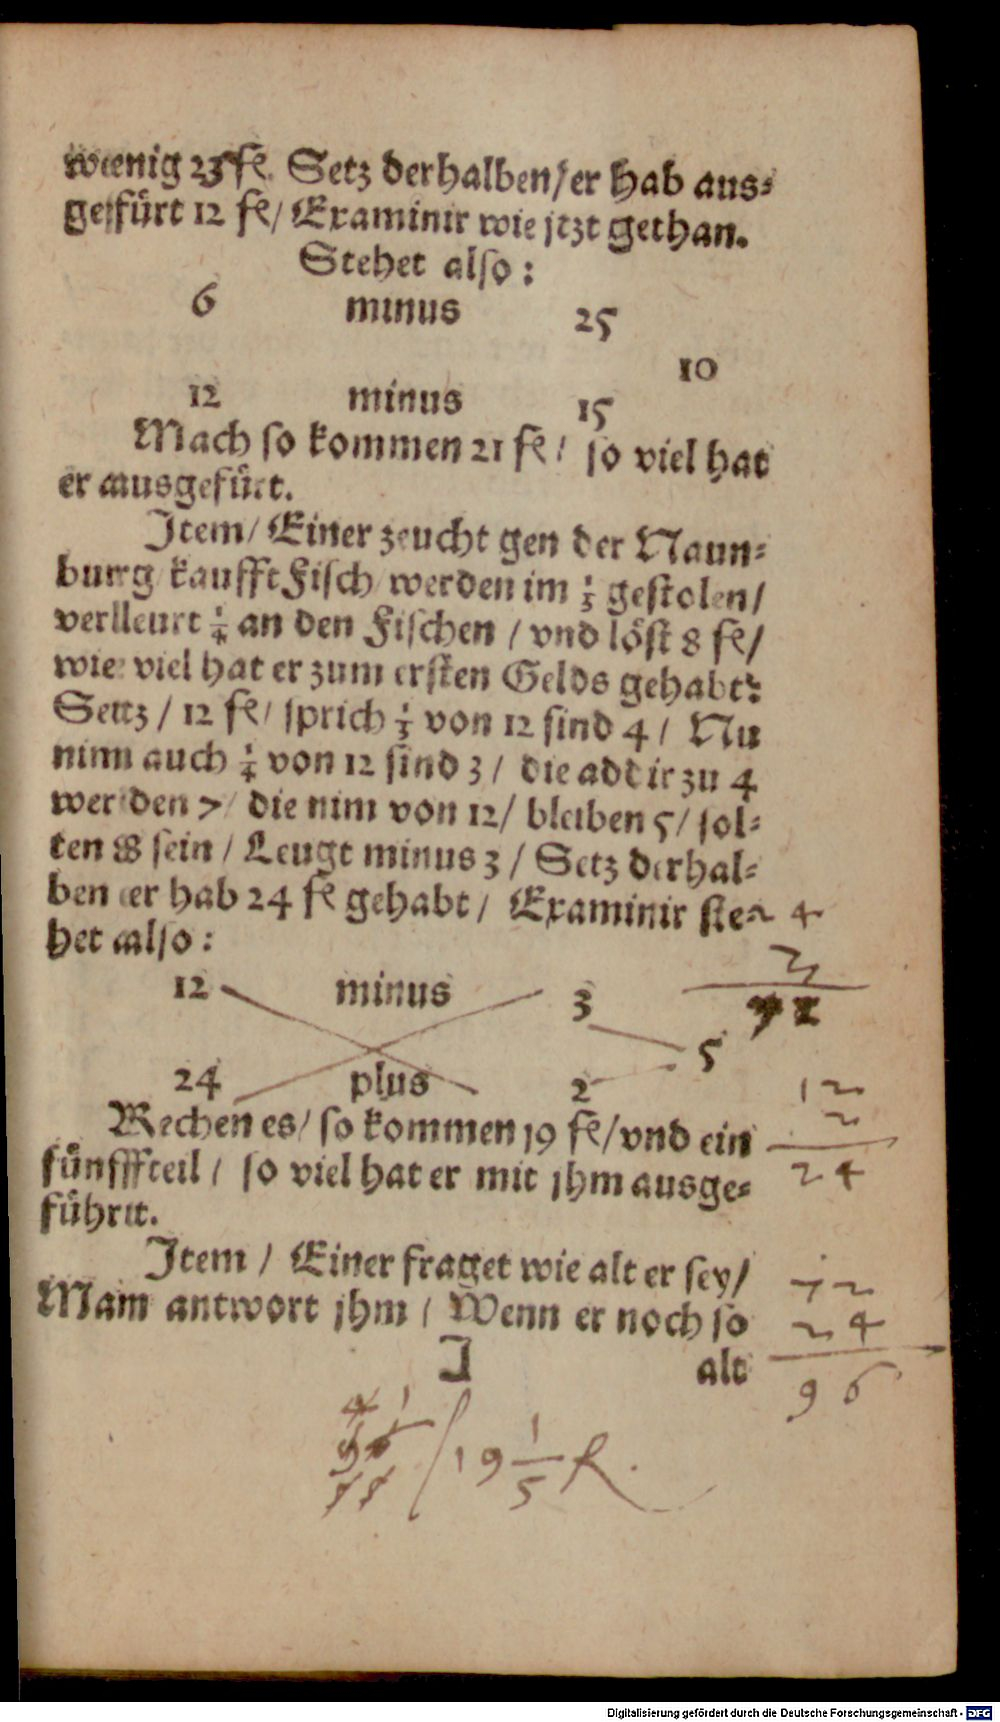 wenig 23 fl. Setz derhalben/ er hab aus⸗
gefürt 12 fl/ Examinir wie jtzt gethan.
Stehet also:
6 minus 25
10
12 minus 15
Mach so kommen 21 fl/ so viel hat
er ausgefürt.
Item/ Einer zeucht gen der Naun⸗
burg kaufft Fisch/ werden im ⅓ gestolen/
verlleurt ¼ an den Fischen / vnd löst 8 fl/
wie viel hat er zum ersten Gelds gehabt?
Setz / 12 fl/ sprich ⅓ von 12 sind 4 / Nu
nim auch ¼ von 12 sind 3 / die addir zu 4
werden 7/ die nim von 12/ bleiben 5/ sol⸗
ten 8 sein / Leugt minus 3 / Setz derhal⸗
ben er hab 24 fl gehabt / Examinir ste⸗
het also:
12 minus 3
5
24 plus 2
Rechen es/ so kommen 19 fl/ vnd ein
fünffteil / so viel hat er mit jhm ausge⸗
führt.
Item / Einer fraget wie alt er sey/
Man antwort jhm / Wenn er noch so
I alt
2 4
3
7 2
12
2
24
72
24
96
4 1
96
55
/19 1/5 fl.
Digitalisierung gefördert durch die Deutsche Forschungsgemeinschaft - DFG